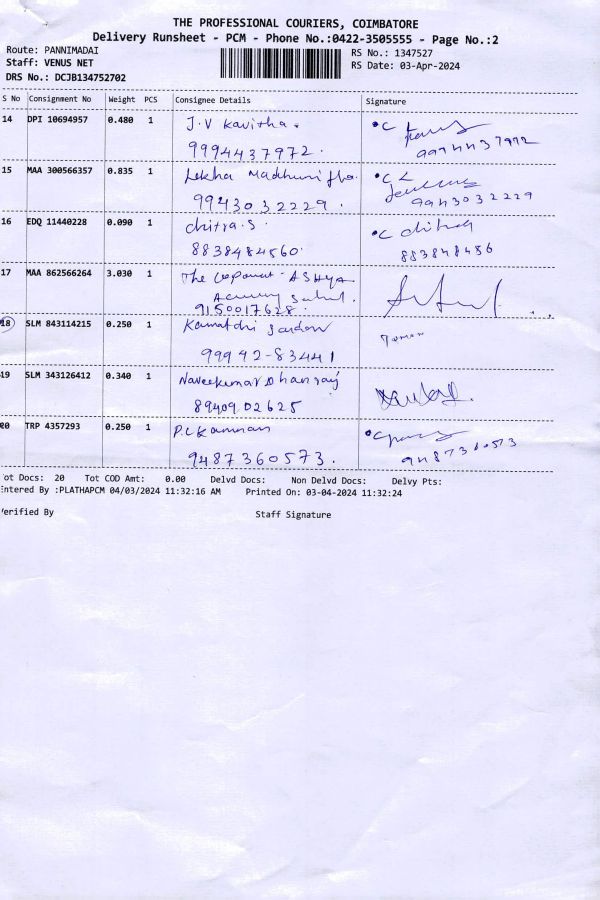 THE PROFESSIONAL COURIERS, COIMBATORE
Delivery Runsheet - PCM - Phone No.:0422-3505555 - Page No.:2
Route: PANNIMADAI
RS No.: 1347527
Staff: VENUS NET
RS Date: 03-Apr-2024
DRS No.: DCJB134752702
S No Consignment No Weight PCS Consignee Details Signature
14 DPI 10694957 0.480 1 J.V Kavitha.
9994437972.
9944437972
15 MAA 300566357 0.835 1 Lekha
9943032229.
9943032229
16 EDQ 11440228 0.090 1 chitra.S
8838484560.
17 MAA 862566264 3.030 1 The
9150017628.
18 SLM 843114215 0.250 1
99942-83441
19 SLM 343126412 0.340 1 Naveekumar Dhanraj
8940902625
20 TRP 4357293 0.250 1 P.L Kannan
9487360573.
9487360573
ot Docs: 20 Tot COD Amt: 0.00 Delvd Docs: Non Delvd Docs: Delvy Pts:
Entered By :PLATHAPCM 04/03/2024 11:32:16 AM Printed On: 03-04-2024 11:32:24
Verified By Staff Signature